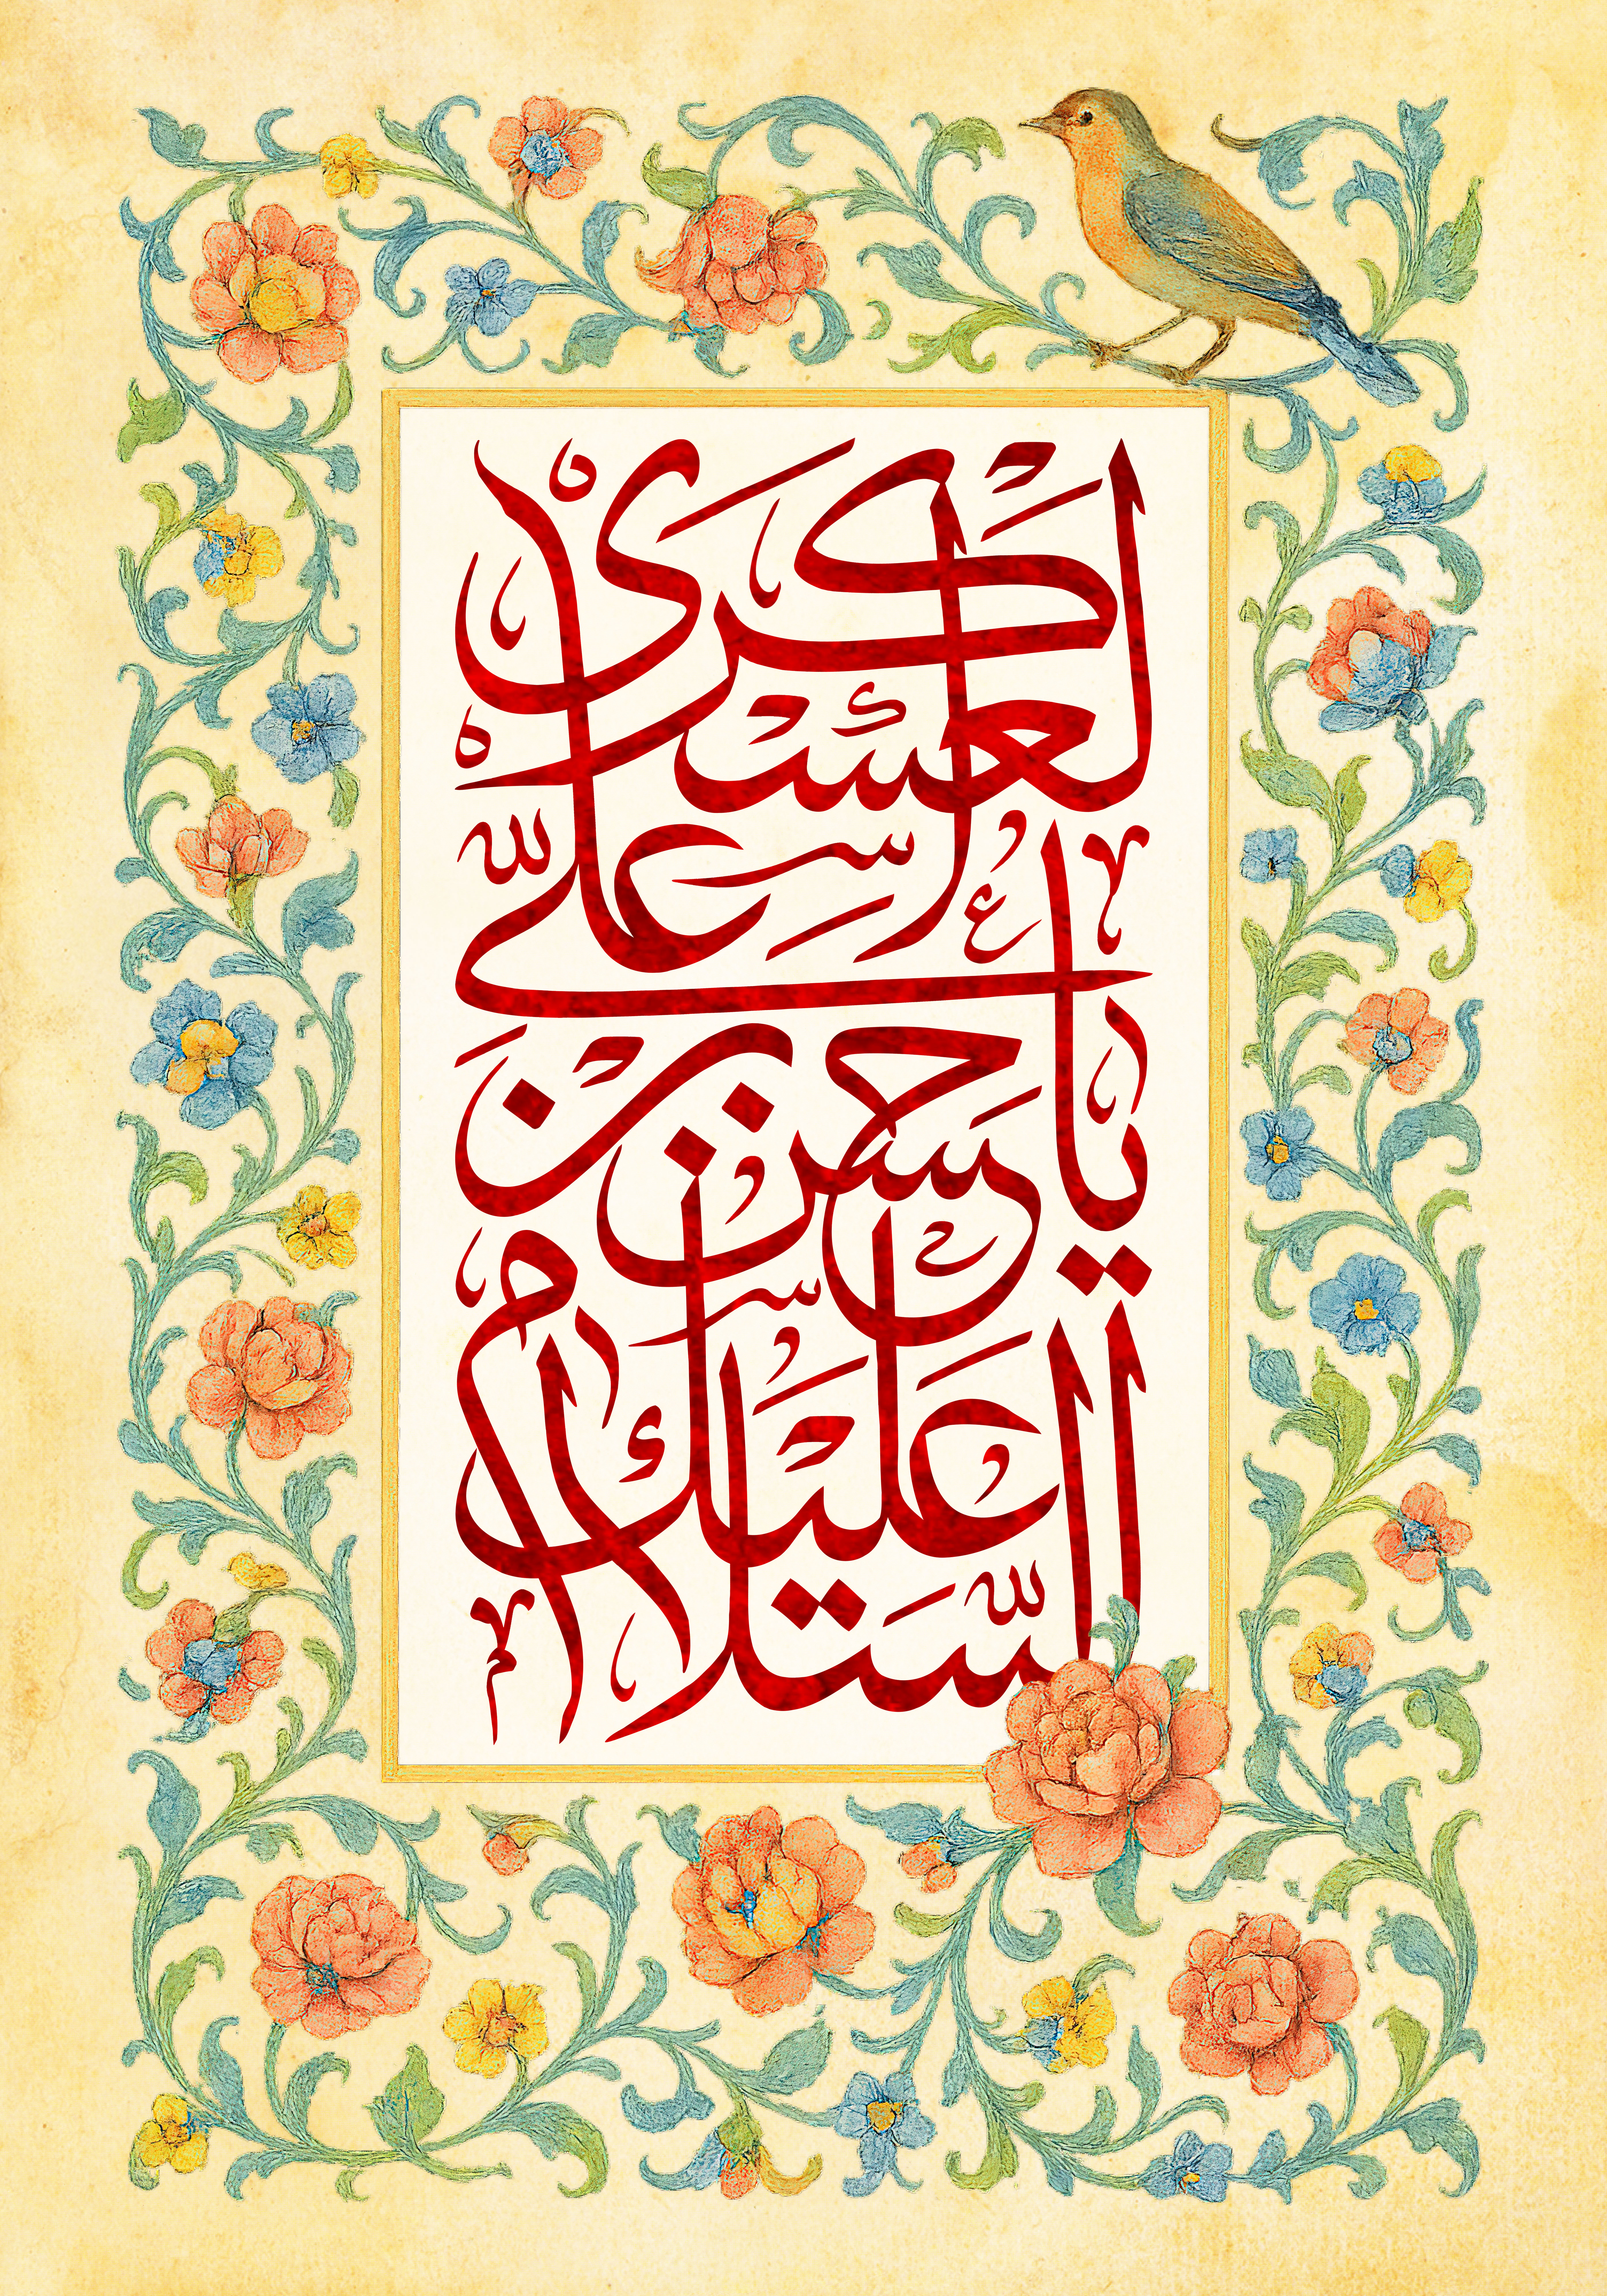 السلام عليك
يا حسن بن
علی
العسکری